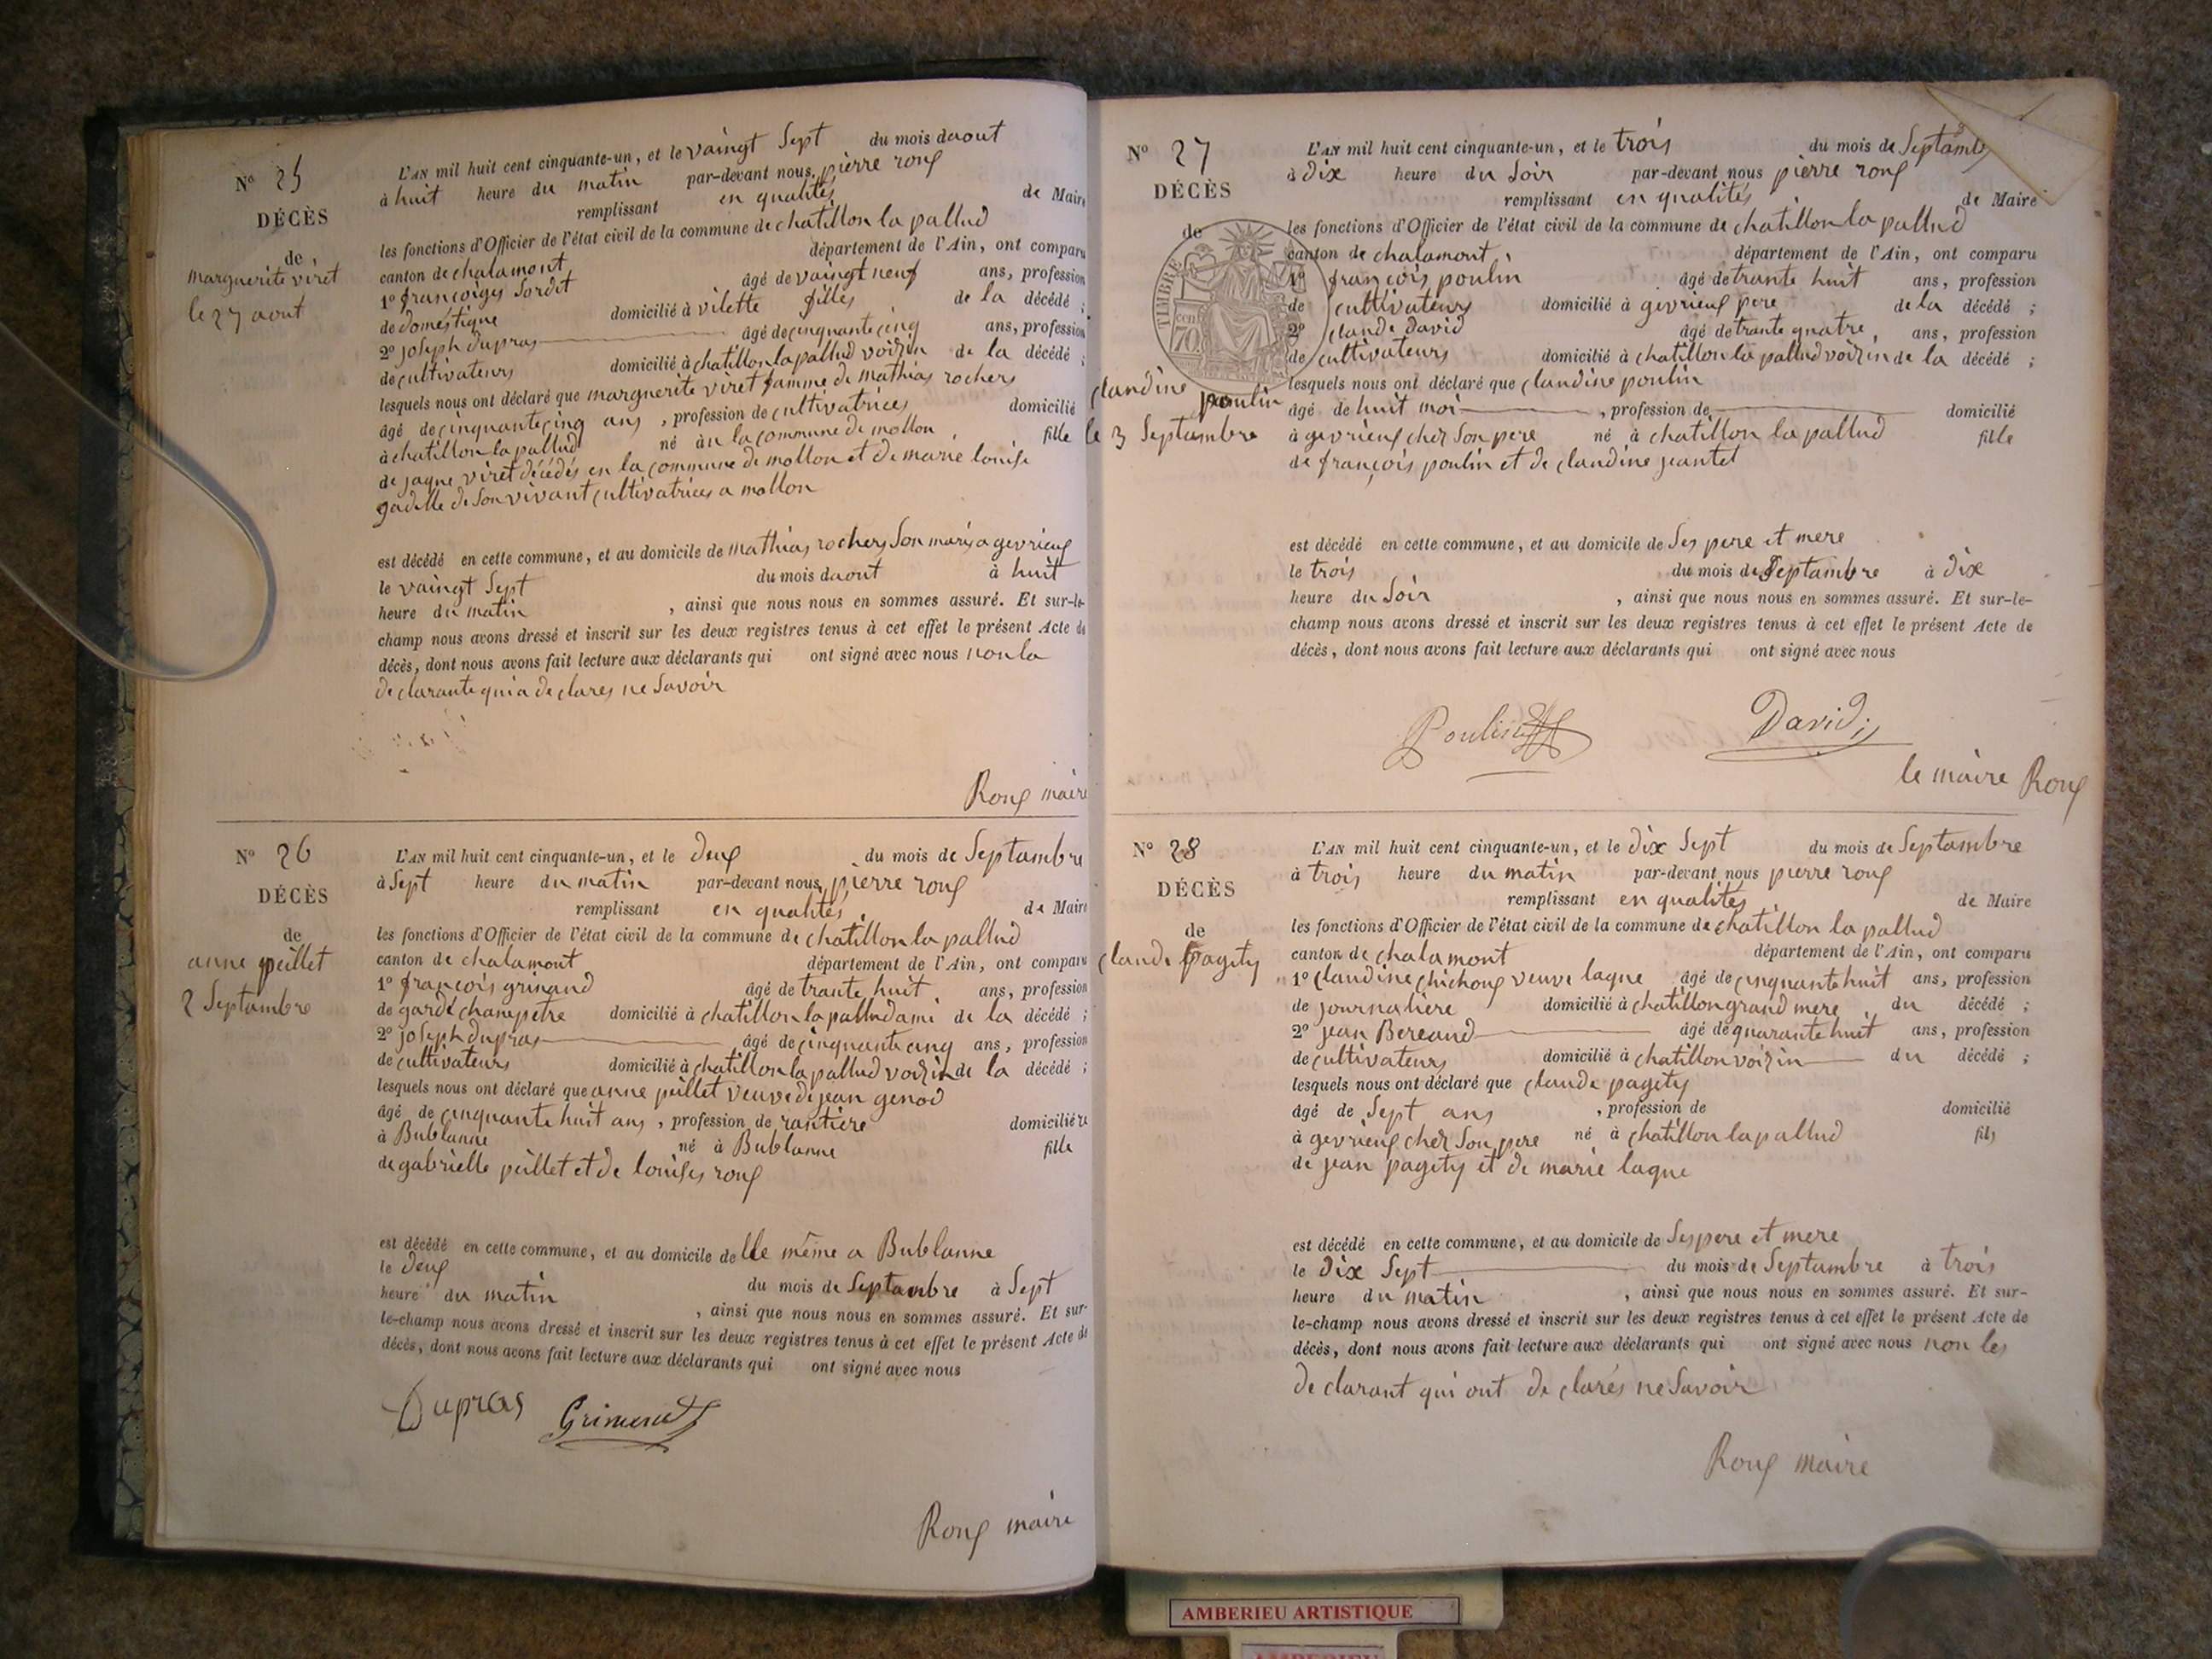 N° 25
DÉCÈS
de
marguerite viret
le 27 aout
L'AN mil huit cent cinquante-un, et le vaingt Sept du mois daout
à huit heure du matin par-devant nous pierre roux
remplissant en qualités de Maire
les fonctions d'Officier de l'état civil de la commune de chatillon la pallud
canton de chalamont département de l'Ain, ont comparu
1° françoises Sordet âgé de vaingt neuf ans, profession
de doméstique domicilié à vilette filles de la décédé ;
2° joseph dupras âgé de cinquante cinq ans, profession
de cultivateurs domicilié à chatillon la pallud voizin de la décédé ;
lesquels nous ont déclaré que marguerite viret famme de mathias rochers
âgé de cinquante cinq ans, profession de cultivatrices domicilié
à chatillon la pallud né à en la commune de mollon fille
de jaque viret décédés en la commune de mollon et de marie louise
gadelle de Son vivant cultivatrices a mollon
est décédé en cette commune, et au domicile de mathias rochers Son maris a gevrieux
le vaingt Sept du mois daout à huit
heure du matin, ainsi que nous nous en sommes assuré. Et sur-le-
champ nous avons dressé et inscrit sur les deux registres tenus à cet effet le présent Acte de
décès, dont nous avons fait lecture aux déclarants qui ont signé avec nous non la
declarante qui a declares ne Savoir
Roux maire
N° 26
DÉCÈS
de
anne peillet
2 Septambre
L'AN mil huit cent cinquante-un, et le deux du mois de Septambre
à Sept heure du matin par-devant nous pierre roux
remplissant en qualités de Maire
les fonctions d'Officier de l'état civil de la commune de chatillon la pallud
canton de chalamont département de l'Ain, ont comparu
1° françois grinand âgé de trante huit ans, profession
de garde champetre domicilié à chatillon la pallud ami de la décédé ;
2° joseph dupras âgé de cinquante cinq ans, profession
de cultivateurs domicilié à chatillon la pallud voizin de la décédé ;
lesquels nous ont déclaré que anne peillet veuve de jean genod
âgé de cinquante huit ans, profession de rantière domicilié
à Bublanne né à Bublanne fille
de gabrielle peillet et de louises roux
est décédé en cette commune, et au domicile de Elle même a Bublanne
le deux du mois de Septambre à Sept
heure du matin, ainsi que nous nous en sommes assuré. Et sur-
le-champ nous avons dressé et inscrit sur les deux registres tenus à cet effet le présent Acte de
décès, dont nous avons fait lecture aux déclarants qui ont signé avec nous
Dupras Grinand
Roux maire
N° 27
DÉCÈS
de
TIMBRE
70.
claudine
poulin
le 3 Septambre
L'AN mil huit cent cinquante-un, et le trois du mois de Septambre
à dix heure du Soir par-devant nous pierre roux
remplissant en qualités de Maire
les fonctions d'Officier de l'état civil de la commune de chatillon la pallud
canton de chalamont département de l'Ain, ont comparu
1° françois poulin âgé de trante huit ans, profession
de cultivateurs domicilié à gevrieux pere de la décédé ;
2° claude david âgé de trante quatre ans, profession
de cultivateurs domicilié à chatillon la pallud voizin de la décédé ;
lesquels nous ont déclaré que claudine poulin
âgé de huit moi, profession de domicilié
à gevrieux chez Son pere né à chatillon la pallud fille
de françois poulin et de claudine jeantet
est décédé en cette commune, et au domicile de Ses pere et mere
le trois du mois de Septambre à dix
heure du Soir, ainsi que nous nous en sommes assuré. Et sur-le-
champ nous avons dressé et inscrit sur les deux registres tenus à cet effet le présent Acte de
décès, dont nous avons fait lecture aux déclarants qui ont signé avec nous
Poulin David
le maire Roux
N° 28
DÉCÈS
de
claude pagety
L'AN mil huit cent cinquante-un, et le dix Sept du mois de Septambre
à trois heure du matin par-devant nous pierre roux
remplissant en qualités de Maire
les fonctions d'Officier de l'état civil de la commune de chatillon la pallud
canton de chalamont département de l'Ain, ont comparu
1° claudine chichoux veuve laque âgé de cinquante huit ans, profession
de journaliere domicilié à chatillon grand mere du décédé ;
2° jean Bereaud âgé de quarante huit ans, profession
de cultivateurs domicilié à chatillon voizin du décédé ;
lesquels nous ont déclaré que claude pagety
âgé de Sept ans, profession de domicilié
à gevrieux chez Son pere né à chatillon la pallud fils
de jean pagety et de marie laque
est décédé en cette commune, et au domicile de Ses pere et mere
le dix Sept du mois de Septambre à trois
heure du matin, ainsi que nous nous en sommes assuré. Et sur-
le-champ nous avons dressé et inscrit sur les deux registres tenus à cet effet le présent Acte de
décès, dont nous avons fait lecture aux déclarants qui ont signé avec nous non les
declarant qui ont declarés ne Savoir
Roux maire
AMBERIEU ARTISTIQUE
AMBERIEU